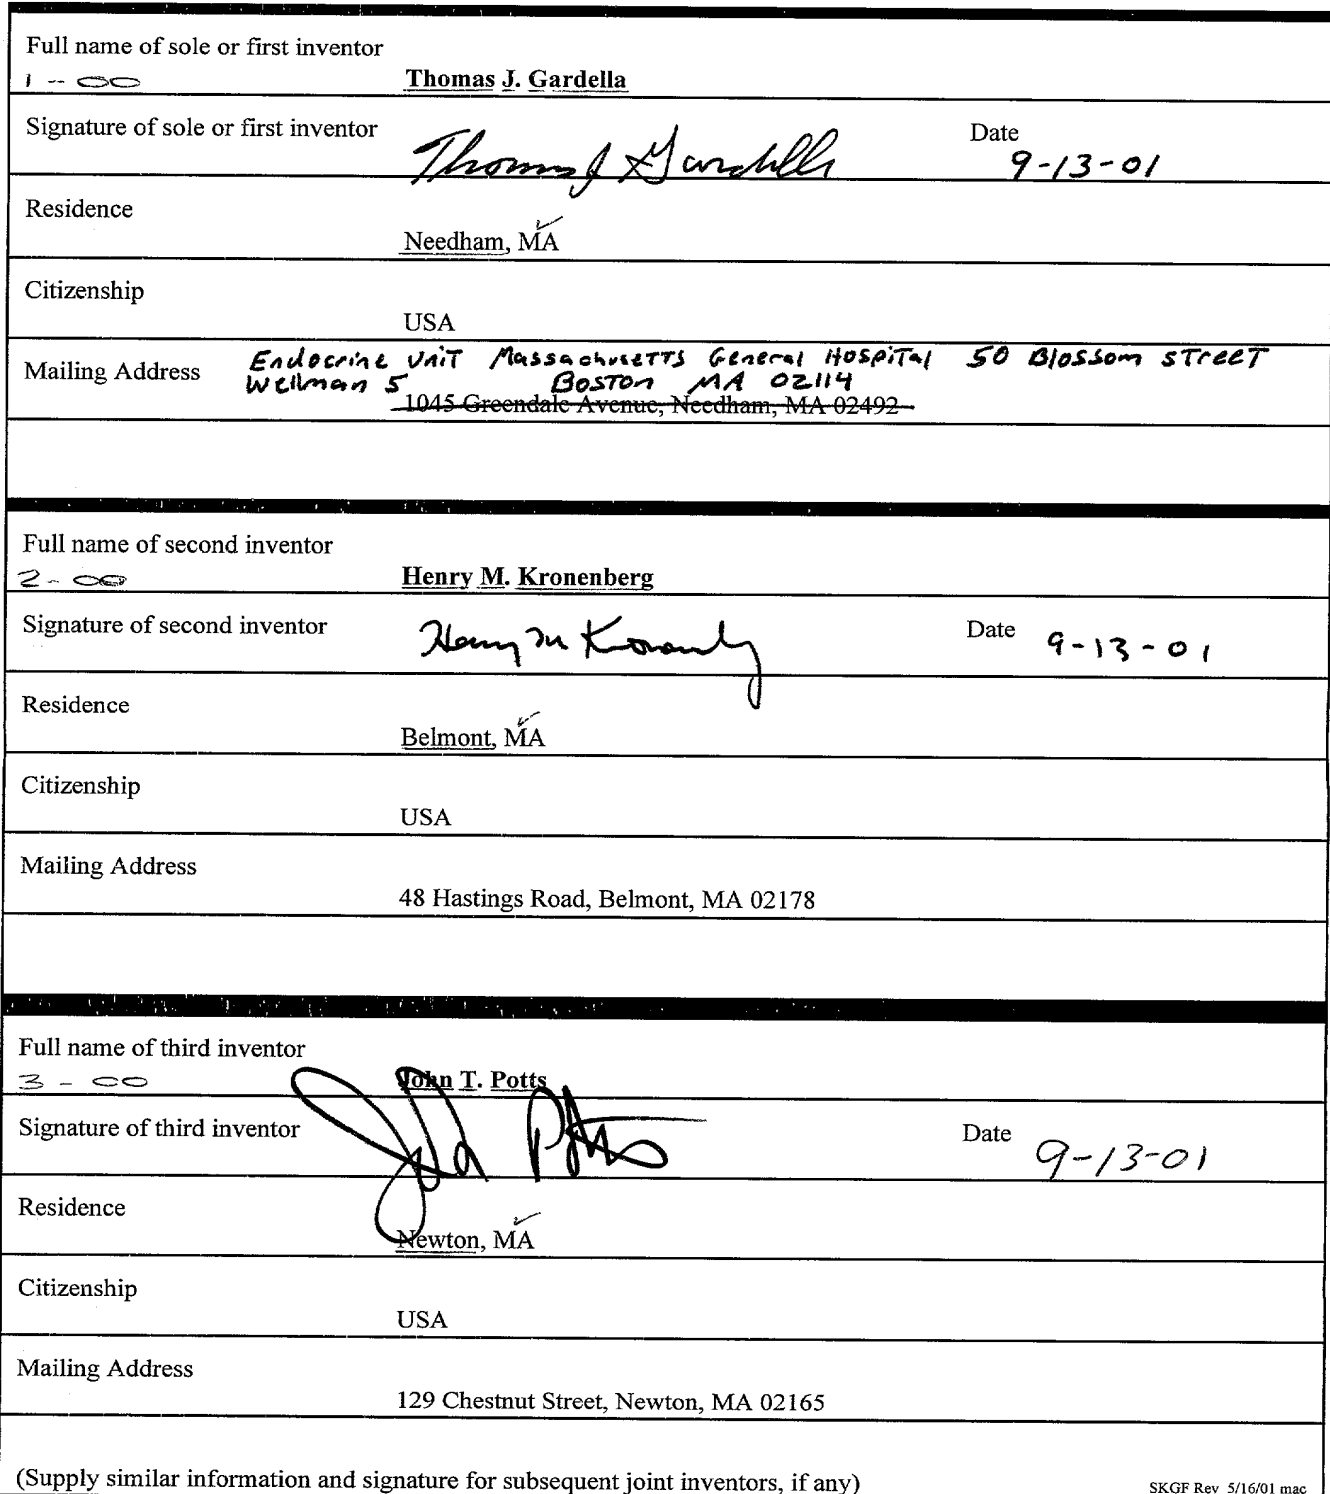 Full name of sole or first inventor
1-00 Thomas J. Gardella
Signature of sole or first inventor Thomas J Gardella Date 9-13-01
Residence
Needham, MA
Citizenship
USA
Mailing Address Endocrine Unit Massachusetts General Hospital 50 Blossom Street
Wellman 5 Boston MA 02114
1045 Greendale Avenue, Needham, MA 02492
Full name of second inventor
2-00 Henry M. Kronenberg
Signature of second inventor Henry M Kronenberg Date 9-13-01
Residence
Belmont, MA
Citizenship
USA
Mailing Address
48 Hastings Road, Belmont, MA 02178
Full name of third inventor
3-00 John T. Potts
Signature of third inventor John Potts Date 9-13-01
Residence
Newton, MA
Citizenship
USA
Mailing Address
129 Chestnut Street, Newton, MA 02165
(Supply similar information and signature for subsequent joint inventors, if any) SKGF Rev 5/16/01 mac